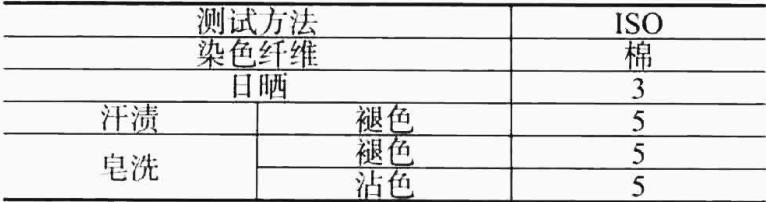 测试方法 ISO
染色纤维 棉
日晒 3
汗渍 褪色 5
皂洗 褪色 5
沾色 5